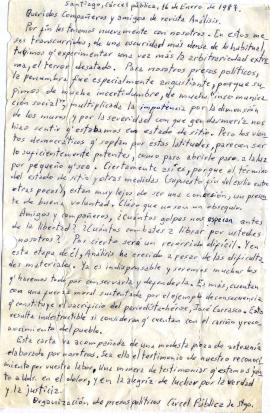 Santiago, Cárcel pública, 16 de Enero de 1987.
Queridos Compañeros y amigos de revista Análisis.
Por fin les tenemos nuevamente con nosotros. En estos me-
ses transcurridos, de una oscuridad más densa de lo habitual,
tuvimos que experimentar una vez más la arbitrariedad extre-
ma, el terror desatado. Para nosotros presos políticos,
la penumbra fue especialmente angustiante, porque su-
pimos de mucha incertidumbre, de mucha "incomunica-
ción social", multiplicada la impotencia por la dimensión
de los muros, y por la severidad con que gendarmería nos
hizo sentir que estábamos con estado de sitio. Pero los vien-
tos democráticos que soplan por estas latitudes, parecen ser
lo suficientemente potentes, como para abrirle paso a la luz
por pequeño que sea. Ciertamente así es, porque el término
del estado de sitio y otras medidas
otras pocas), están muy lejos de ser una concesión, un presen-
te de buena voluntad. Claro que no son un obsequio.
Amigos y compañeros, ¿Cuántos golpes nos esperan antes
de la libertad? ¿Cuántos combates a librar por ustedes
y nosotros? Por cierto será un recorrido difícil. Y en
esta etapa de él, Análisis ha crecido a pesar de las dificulta-
des materiales. Ya es indispensable y seremos muchos los
que haremos todo por conservarla y defenderla. Es más, cuentan
con una fuerza moral sustentada por el ejemplo de consecuencia
que constituye el sacrificio del periodista héroe, José Carrasco. Esto
resulta indestructible si consideran que cuentan con el cariño y reco-
nocimiento del pueblo.
Esta carta va acompañada de una modesta pieza de artesanía
elaborada por nosotros. Sea ella el testimonio de nuestro reconoci-
miento por vuestra labor. Una manera de testimoniar que estamos jun-
to a Uds. en el dolor, y en la alegría de luchar por la verdad
y la justicia.
Organización de presos políticos Cárcel Pública de Stgo.